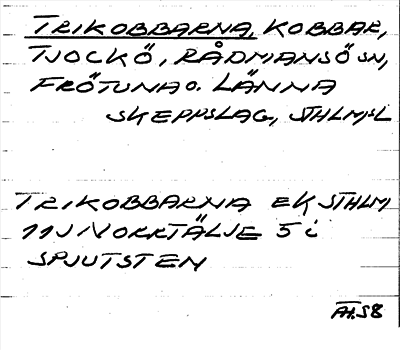 TRIKOBBARNA, KOBBAR,
TJOCKÖ, RÅDMANSÖ SN,
FRÖTUNA O. LÄNNA
SKEPPSLAG, STHLMSL
TRIKOBBARNA EK STHLM
11J NORRTÄLJE 5 i
SPJUTSTEN